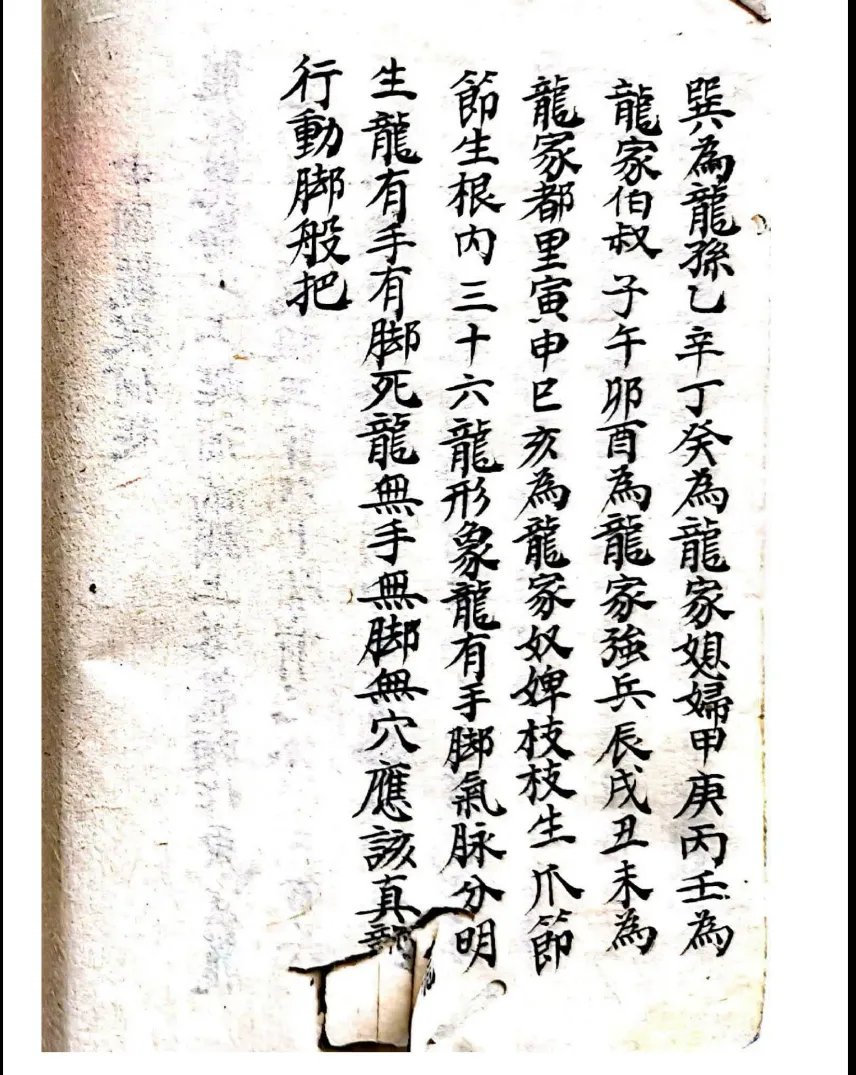 巽為龍孫乙辛丁癸為龍家媳婦甲庚丙壬為
龍家伯叔子午卯酉為龍家強兵辰戌丑未為
龍家都里寅申巳亥為龍家奴婢枝枝生爪節
節生根内三十六龍形象龍有手脚氣脉分明
生龍有手有脚死龍無手無脚無穴應該真龍
行動脚般把